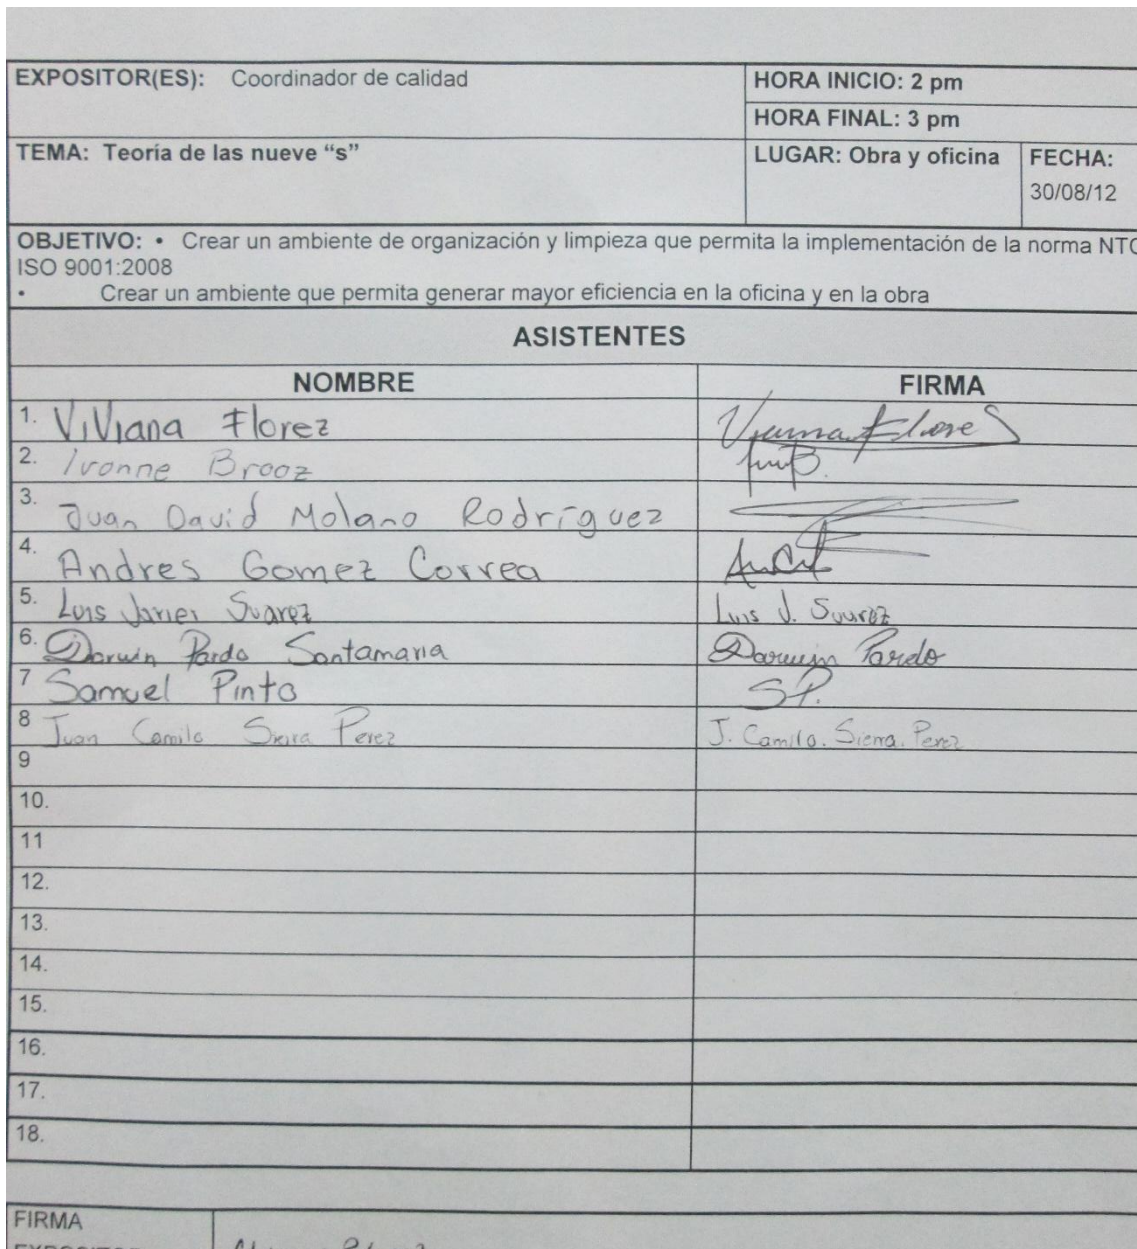 EXPOSITOR(ES): Coordinador de calidad
HORA INICIO: 2 pm
HORA FINAL: 3 pm
TEMA: Teoría de las nueve “s”
LUGAR: Obra y oficina
FECHA:
30/08/12
OBJETIVO: • Crear un ambiente de organización y limpieza que permita la implementación de la norma NTC
ISO 9001:2008
• Crear un ambiente que permita generar mayor eficiencia en la oficina y en la obra
ASISTENTES
NOMBRE FIRMA
1. ViViana Florez
2. Ivonne Brooz
3. Juan David Molano Rodríguez
4. Andres Gomez Correa
5. Luis Javier Suarez Luis J. Suarez
6. Darwin Pardo Santamaria Darwin Pardo
7 Samuel Pinto S.P.
8 Juan Camilo Sierra Perez J. Camilo. Sierra. Perez
9
10.
11
12.
13.
14.
15.
16.
17.
18.
FIRMA
EXPOSITOR